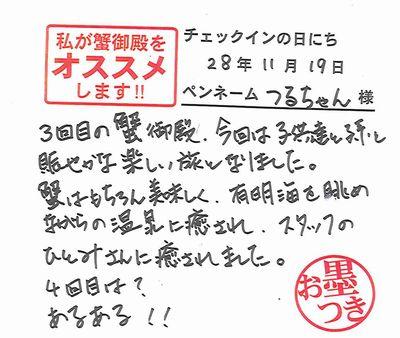 私が蟹御殿を
オススメ
します!!
チェックインの日にち
28年11月19日
ペンネーム つるちゃん 様
3回目の蟹御殿、今回は子供達と孫と
賑やかな楽しい旅となりました。
蟹はもちろん美味しく、有明海を眺め
ながらの温泉に癒され、スタッフの
ひとみさんに癒されました。
4回目は?
あるある!!
お墨つき